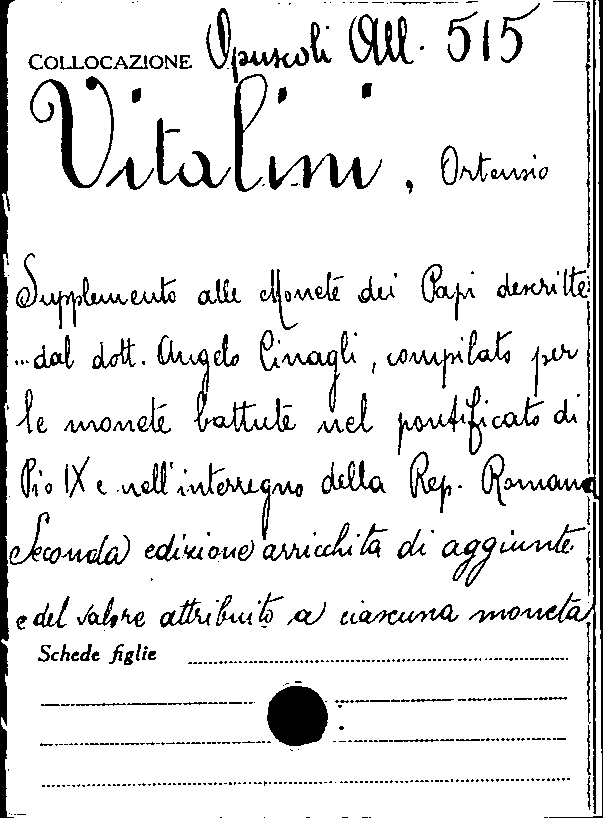 COLLOCAZIONE Opuscoli All. 515
Vitalini, Ortensio
Supplemento alle Monete dei Papi descritte
...dal dott. Angelo Cinagli, compilato per
le monete battute nel pontificato di
Pio IX e nell'interregno della Rep. Romana
Seconda edizione arricchita di aggiunte
e del valore attribuito a ciascuna moneta
Schede figlie